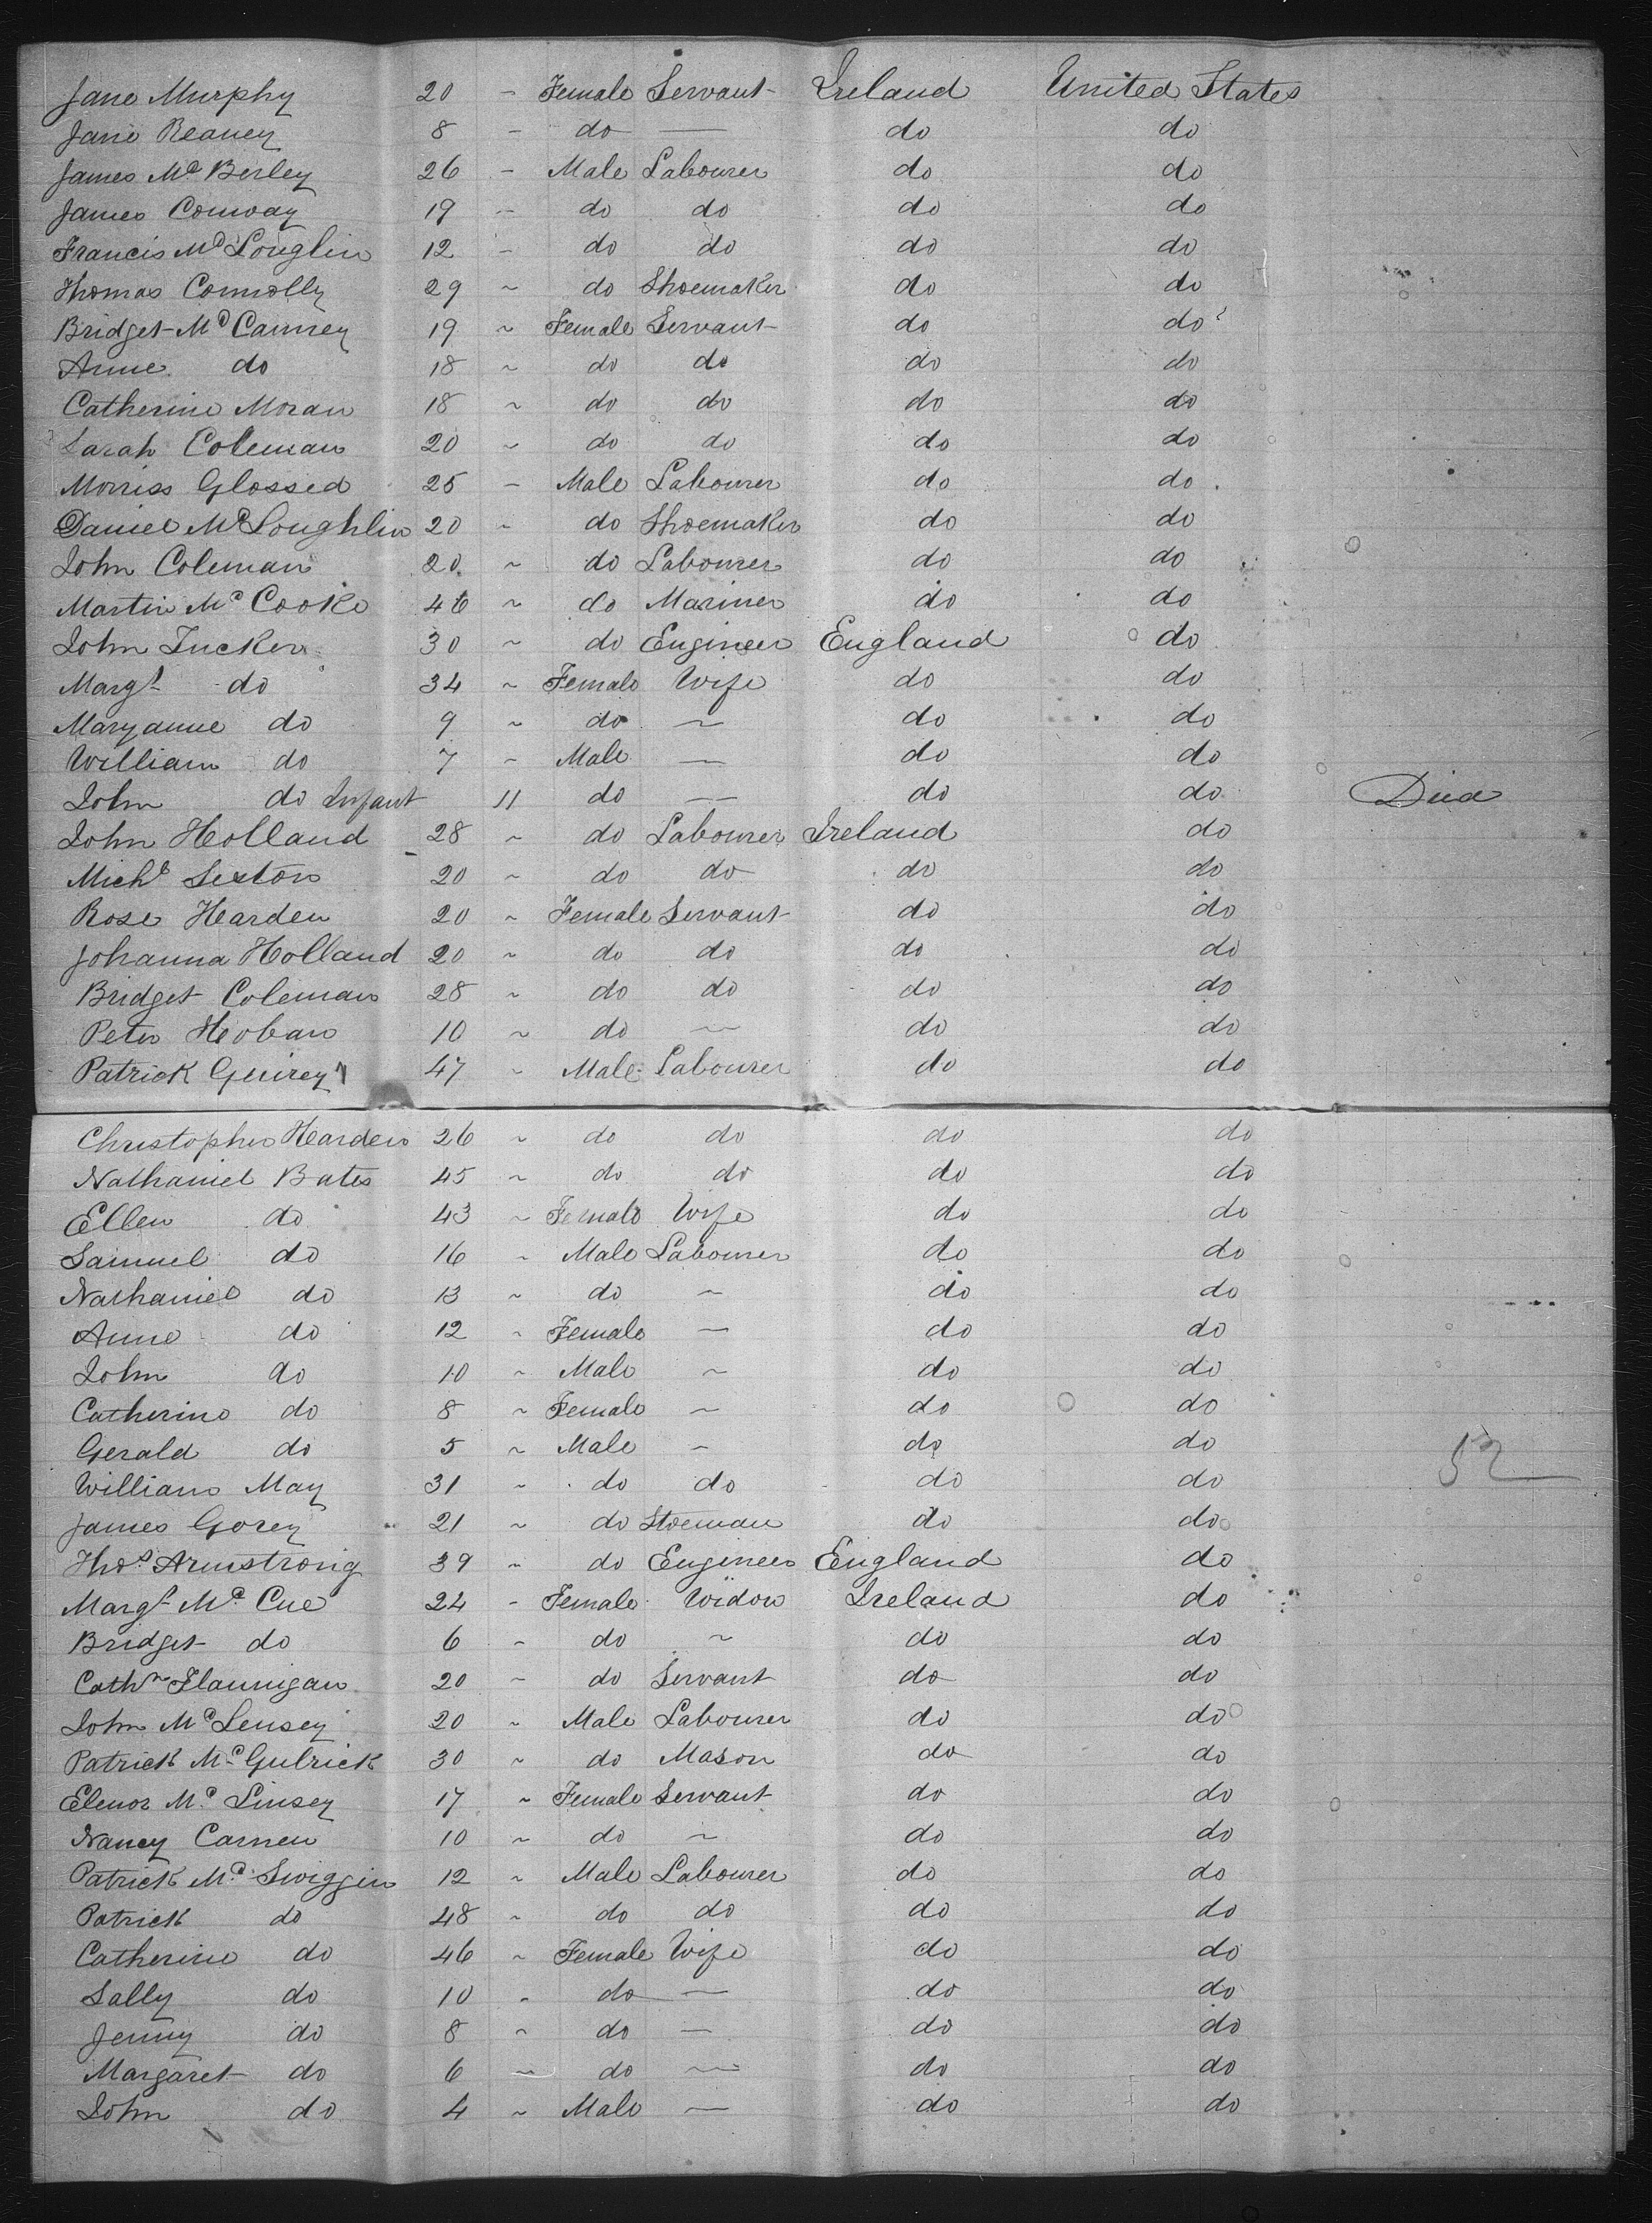 Jane Murphy 20 – Female Servant Ireland United States
Jane Reaney 8 – do — do do
James Mc Berley 26 – Male Labourer do do
James Conway 19 – do do do do
Francis Mc Louglin 12 – do do do do
Thomas Connolly 29 ~ do Shoemaker do do
Bridget Mc Canney 19 ~ Female Servant do do
Anne do 18 ~ do do do do
Catherine Moran 18 ~ do do do do
Sarah Coleman 20 ~ do do do do
Morriss Glossed 25 – Male Labourer do do
Daniel Mc Loughlin 20 ~ do Shoemaker do do
John Coleman 20 ~ do Labourer do do
Martin Mc Cooke 46 ~ do Mariner do do
John Tucker 30 ~ do Engineer England do
Margt do 34 ~ Female Wife do do
Maryanne do 9 ~ do ~ do do
William do 7 ~ Male — do do
John do Infant 11 do — do do Died
John Holland 28 ~ do Labourer Ireland do
Michl Sexton 20 ~ do do do do
Rose Hearden 20 ~ Female Servant do do
Johanna Holland 20 ~ do do do do
Bridget Coleman 28 ~ do do do do
Peter Hoban 10 ~ do ~ do do
Patrick Guirey 47 ~ Male Labourer do do
Christopher Hearden 26 ~ do do do do
Nathaniel Bates 45 ~ do do do do
Ellen do 43 ~ Female Wife do do
Samuel do 16 ~ Male Labourer do do
Nathaniel do 13 ~ do ~ do do
Anne do 12 ~ Female — do do
John do 10 ~ Male ~ do do
Catherine do 8 ~ Female ~ do do
Gerald do 5 ~ Male ~ do do 52
William May 31 ~ do do do do
James Gorey 21 ~ do Stoeman do do
Thos Armstrong 39 ~ do Engineer England do
Margt Mc Cue 24 – Female Widow Ireland do
Bridget do 6 – do ~ do do
Cathn Flannigan 20 ~ do Servant do do
John Mc Lensey 20 ~ Male Labourer do do
Patrick Mc Gulrick 30 ~ do Mason do do
Elenor Mc Linsey 17 ~ Female Servant do do
Nancy Carnen 10 ~ do ~ do do
Patrick Mc Swiggin 12 ~ Male Labourer do do
Patrick do 48 ~ do do do do
Catherine do 46 ~ Female Wife do do
Sally do 10 ~ do — do do
Jenny do 8 ~ do — do do
Margaret do 6 ~ do ~ do do
John do 4 ~ Male — do do